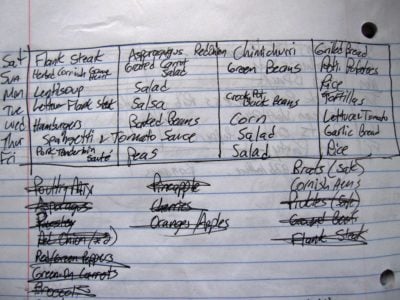 Sat Flank Steak Asparagus Red Onion Chimichuri Grilled Bread
Sun Herbed Cornish Game Hens Grated Carrot Salad Green Beans Potatoes
Mon Lentil Soup Salad Rice
Tue Leftover Flank Steak Salsa Crock Pot Black Beans Tortillas
Wed Hamburgers Baked Beans Corn Lettuce Tomato
Thur Spaghetti & Tomato Sauce Salad Garlic Bread
Fri Pork Tenderloin Sauté Peas Salad Rice
Poultry Mix Pineapple Brats (Sak)
Asparagus Cherries Cornish Hens
Parsley Oranges/Apples Pickles (Sak)
Red/Green Peppers Flank Steak
Green On Carrots
Broccoli